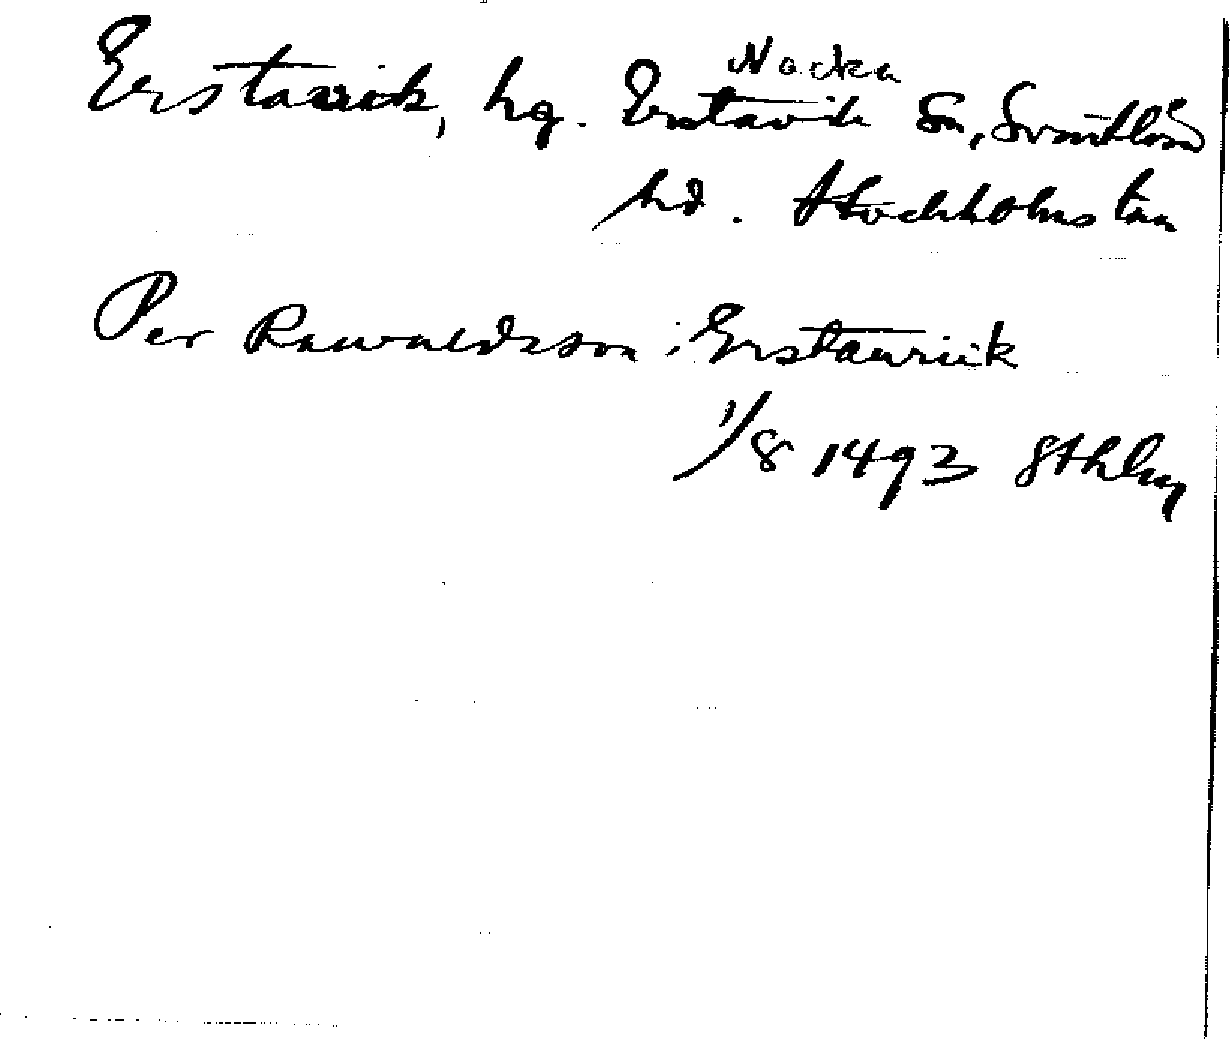 Nacka
Erstavik, hg. Erstavik Sn, Svartlösa
hd. Stockholms län
Per Rawaldsson i Erstawiik
1/8 1493 Sthlm